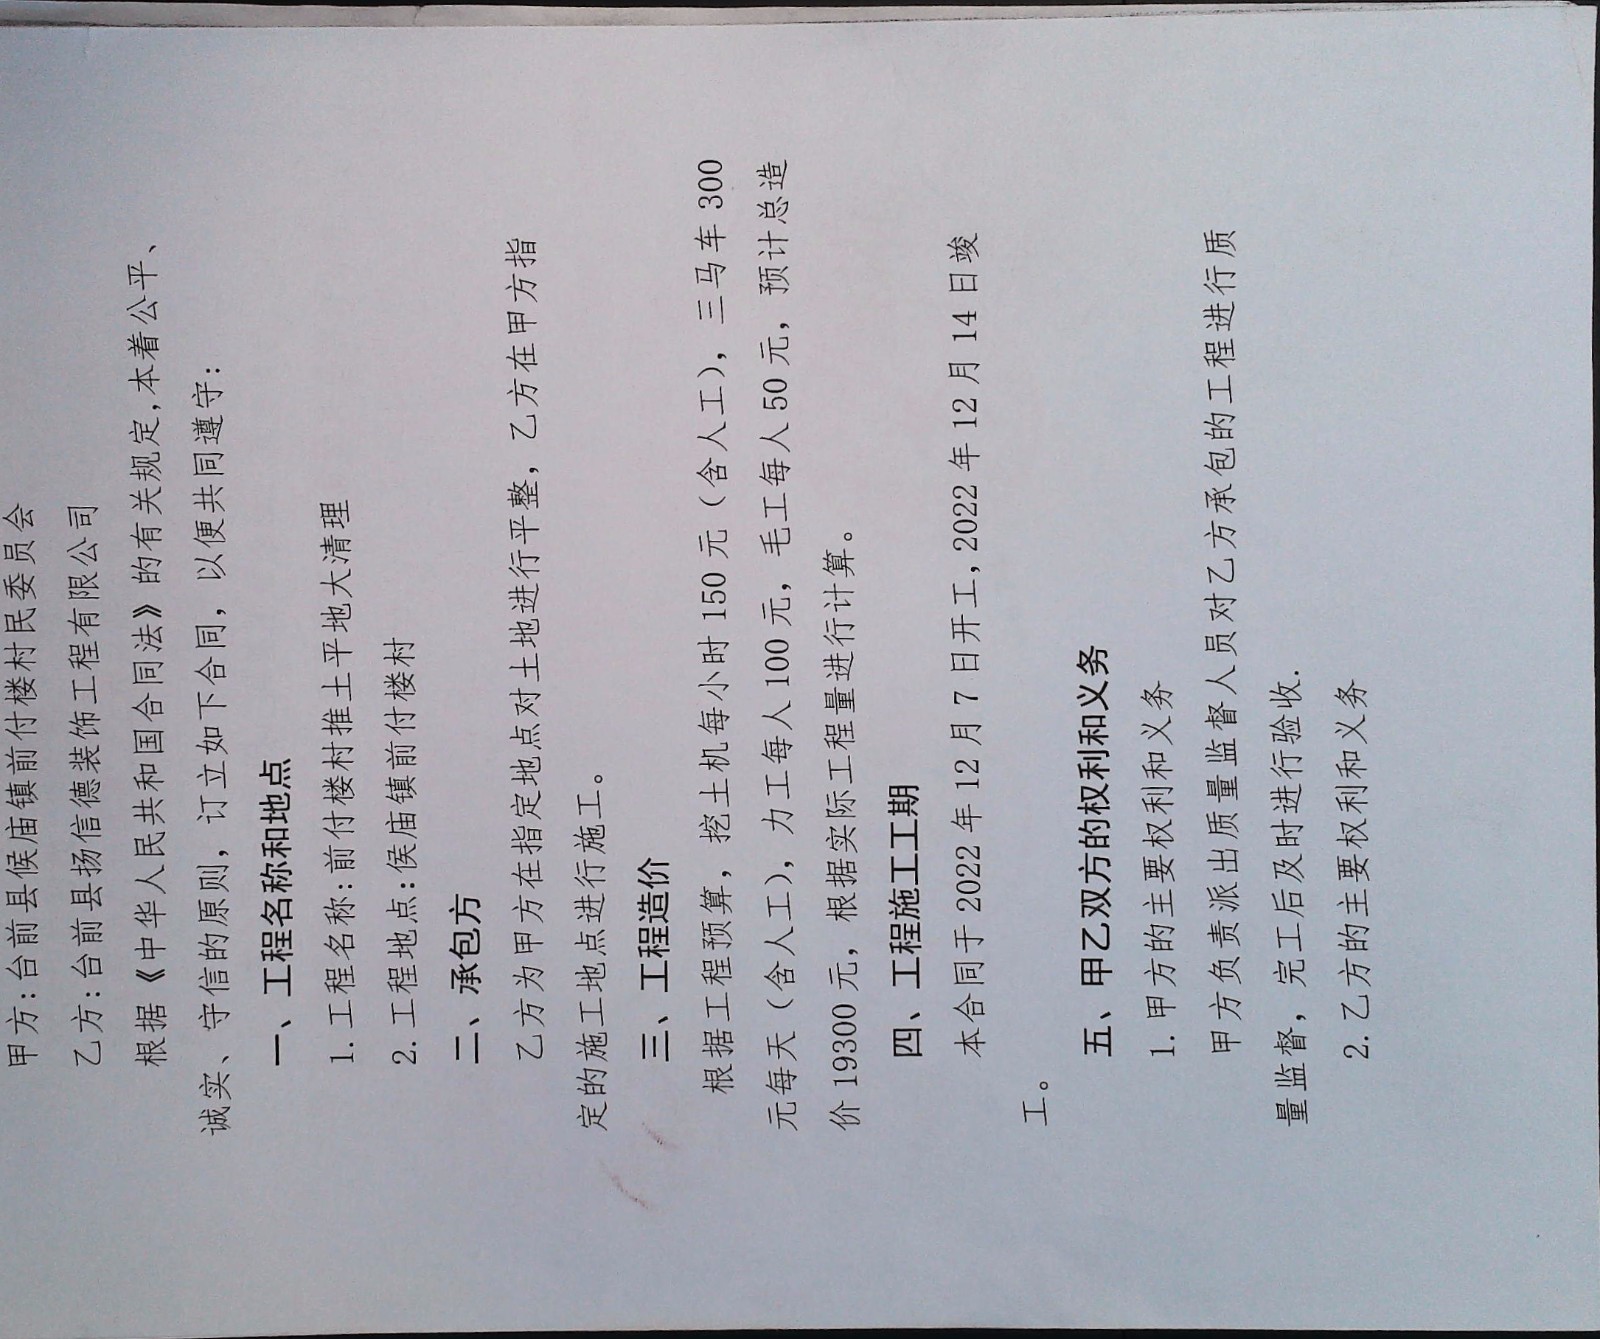 甲方:台前县候庙镇前付楼村民委员会
乙方:台前县扬信德装饰工程有限公司
根据《中华人民共和国合同法》的有关规定,本着公平、
诚实、守信的原则，订立如下合同，以便共同遵守:
一、工程名称和地点
1.工程名称:前付楼村推土平地大清理
2.工程地点:侯庙镇前付楼村
二、承包方
乙方为甲方在指定地点对土地进行平整，乙方在甲方指
定的施工地点进行施工。
三、工程造价
根据工程预算，挖土机每小时150元（含人工），三马车300
元每天（含人工），力工每人100元，毛工每人50元，预计总造
价19300元，根据实际工程量进行计算。
四、工程施工工期
本合同于2022年12月7日开工,2022年12月14日竣
工。
五、甲乙双方的权利和义务
1.甲方的主要权利和义务
甲方负责派出质量监督人员对乙方承包的工程进行质
量监督，完工后及时进行验收.
2.乙方的主要权利和义务